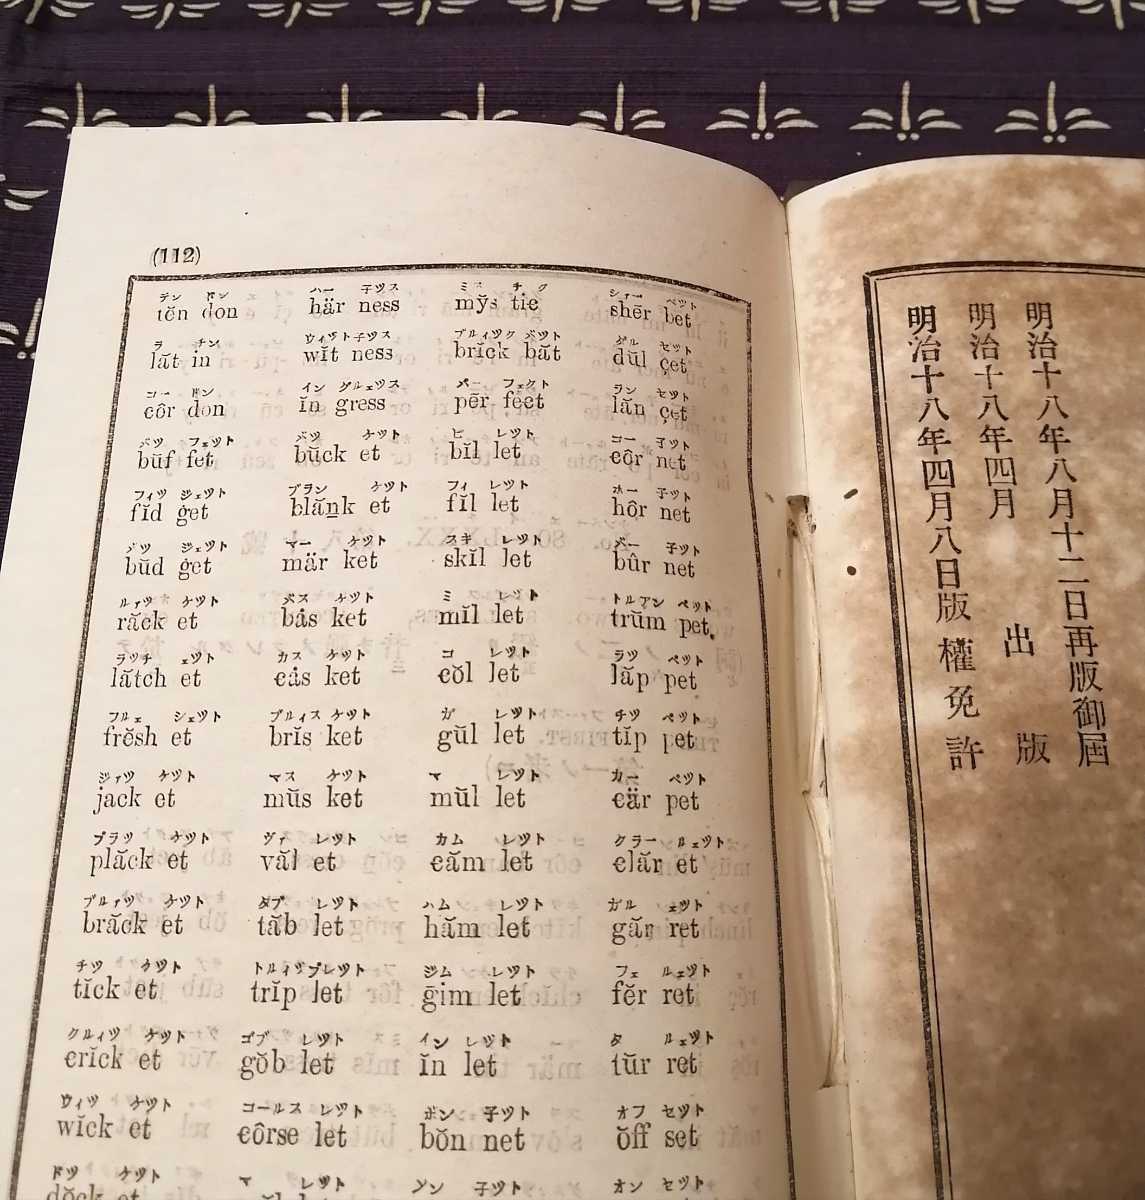 (112)
テン ドン ハー 子ツス ミス チク シァー ベツト
tĕn don här ness my̆s tic shẽr bet
ラ チン ウィツト子ツス ブルィツク バツト ダル セツト
lăt in wĭt ness brĭck băt dŭl çet
コー ドン イン グルェツス パー フェクト ラン セツト
côr don ĭn gress pẽr fect lăn çet
バツ フェツト バツ ケツト ビ レツト コー 子ツト
bŭf fet bŭck et bĭl let côr net
フィツ ジェツト ブラン ケツト フィ レツト ホー 子ツト
fĭd ġet blăṉk et fĭl let hôr net
バツ ジェツト マー ケツト スキ レツト バー 子ツト
bŭd ġet mär ket skĭl let bûr net
ルァツ ケツト バス ケツト ミ レツト トルアン ペツト
răck et bȧs ket mĭl let trŭm pet
ラツチ ェツト カス ケツト コ レツト ラツ ペツト
lătch et cȧs ket cŏl let lăp pet
フルェ シェツト ブルィス ケツト ガ レツト チツ ペツト
frĕsh et brĭs ket gŭl let tĭp pet
ジァツ ケツト マス ケツト マ レツト カー ペツト
jack et mŭs ket mŭl let cär pet
プラツ ケツト ヴァ レツト カム レツト クラー ルェツト
plăck et văl et căm let clăr et
ブルァツ ケツト タブ レツト ハム レツト ガル ェツト
brăck et tăb let hăm let găr ret
チツ ケツト トルィツプレツト ジム レツト フェ ルェツト
tĭck et trĭp let ḡim let fĕr ret
クルィツ ケツト ゴブ レツト イン レツト タ ルェツト
crĭck et gŏb let ĭn let tŭr ret
ウィツ ケツト コールス レツト ボン 子ツト オフ セツト
wĭck et côrse let bŏn net ŏff set
ドツ ケツト マ レツト 子ツト オン セツト
dŏck et
明治十八年八月十二日再版御屆
明治十八年四月 出版
明治十八年四月八日版權免許